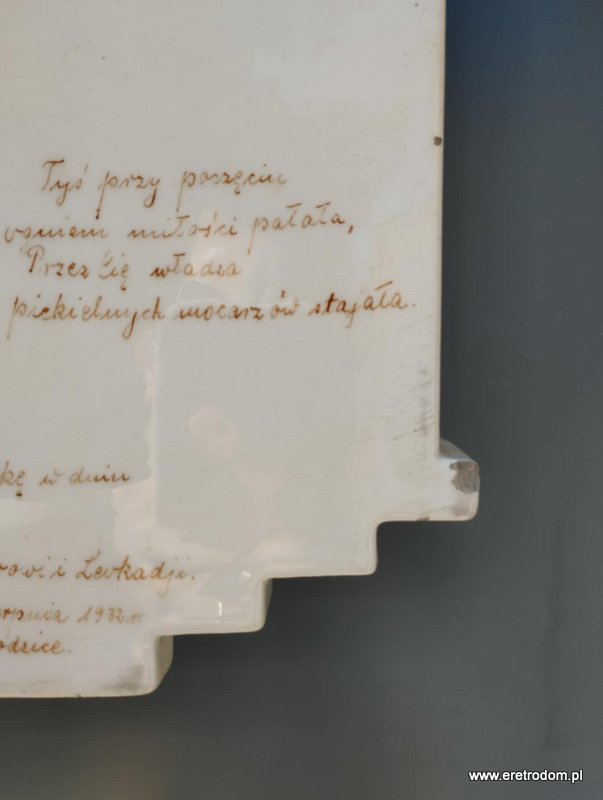 Tyś przy poczęciu
ogniem miłości pałała,
Przez Cię władza
piekielnych mocarzów stajała.
kę w dniu
rowi i Leokadji.
erpnia 1932 r.
odzice.
www.eretrodom.pl